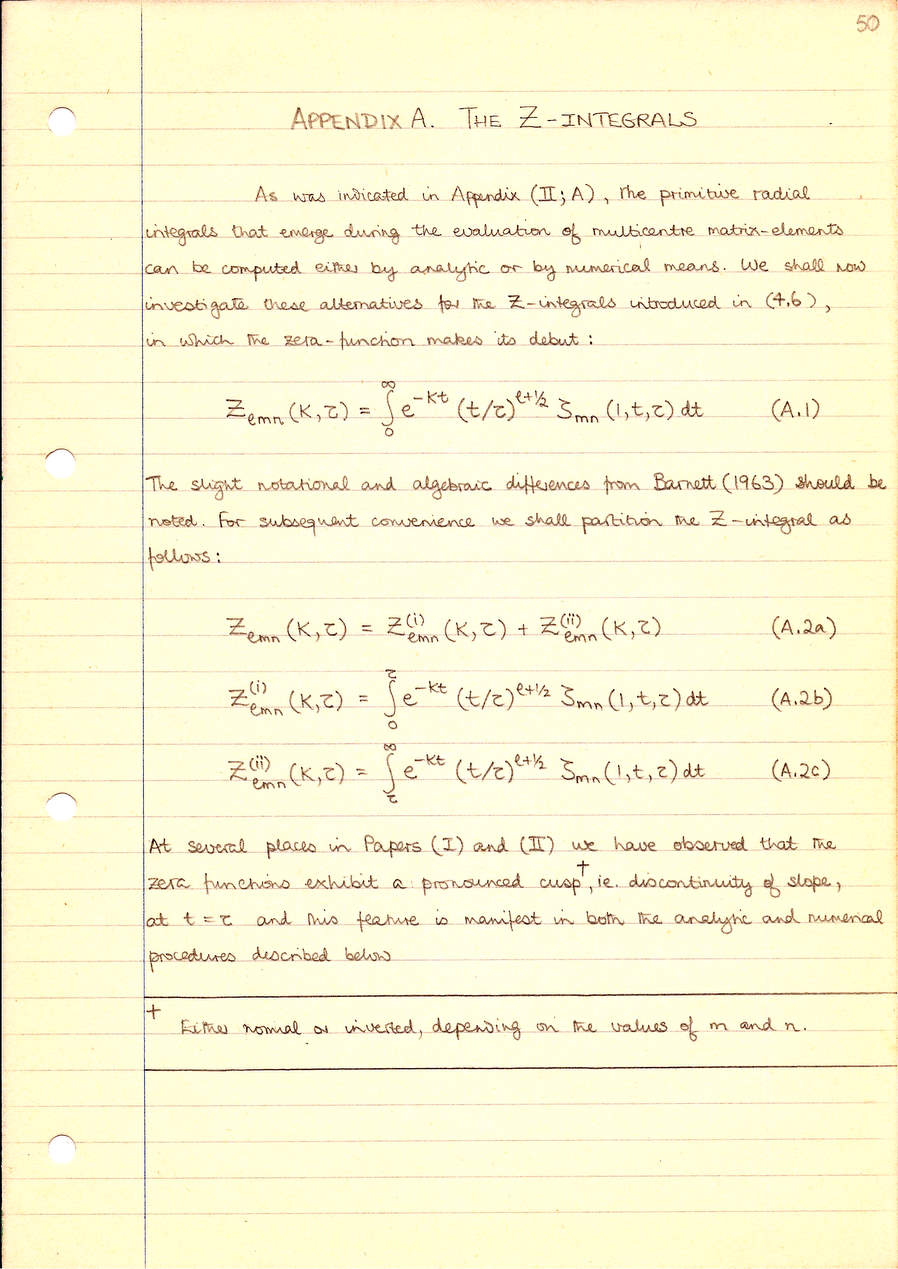 50
APPENDIX A. THE Z-INTEGRALS
As was indicated in Appendix (II; A), the primitive radial
integrals that emerge during the evaluation of multicentre matrix-elements
can be computed either by analytic or by numerical means. We shall now
investigate these alternatives for the Z-integrals introduced in (4.6),
in which the zeta-function makes its debut:
Z_{lmn}(K,τ) = ∫_0^∞ e^{-Kt} (t/τ)^{l+1/2} ζ_{mn}(1,t,τ) dt (A.1)
The slight notational and algebraic differences from Barnett (1963) should be
noted. For subsequent convenience we shall partition the Z-integral as
follows:
Z_{lmn}(K,τ) = Z^{(i)}_{lmn}(K,τ) + Z^{(ii)}_{lmn}(K,τ) (A.2a)
Z^{(i)}_{lmn}(K,τ) = ∫_0^τ e^{-Kt} (t/τ)^{l+1/2} ζ_{mn}(1,t,τ) dt (A.2b)
Z^{(ii)}_{lmn}(K,τ) = ∫_τ^∞ e^{-Kt} (t/τ)^{l+1/2} ζ_{mn}(1,t,τ) dt (A.2c)
At several places in Papers (I) and (II) we have observed that the
zeta functions exhibit a pronounced cusp†, ie. discontinuity of slope,
at t = τ and this feature is manifest in both the analytic and numerical
procedures described below
† Either normal or inverted, depending on the values of m and n.